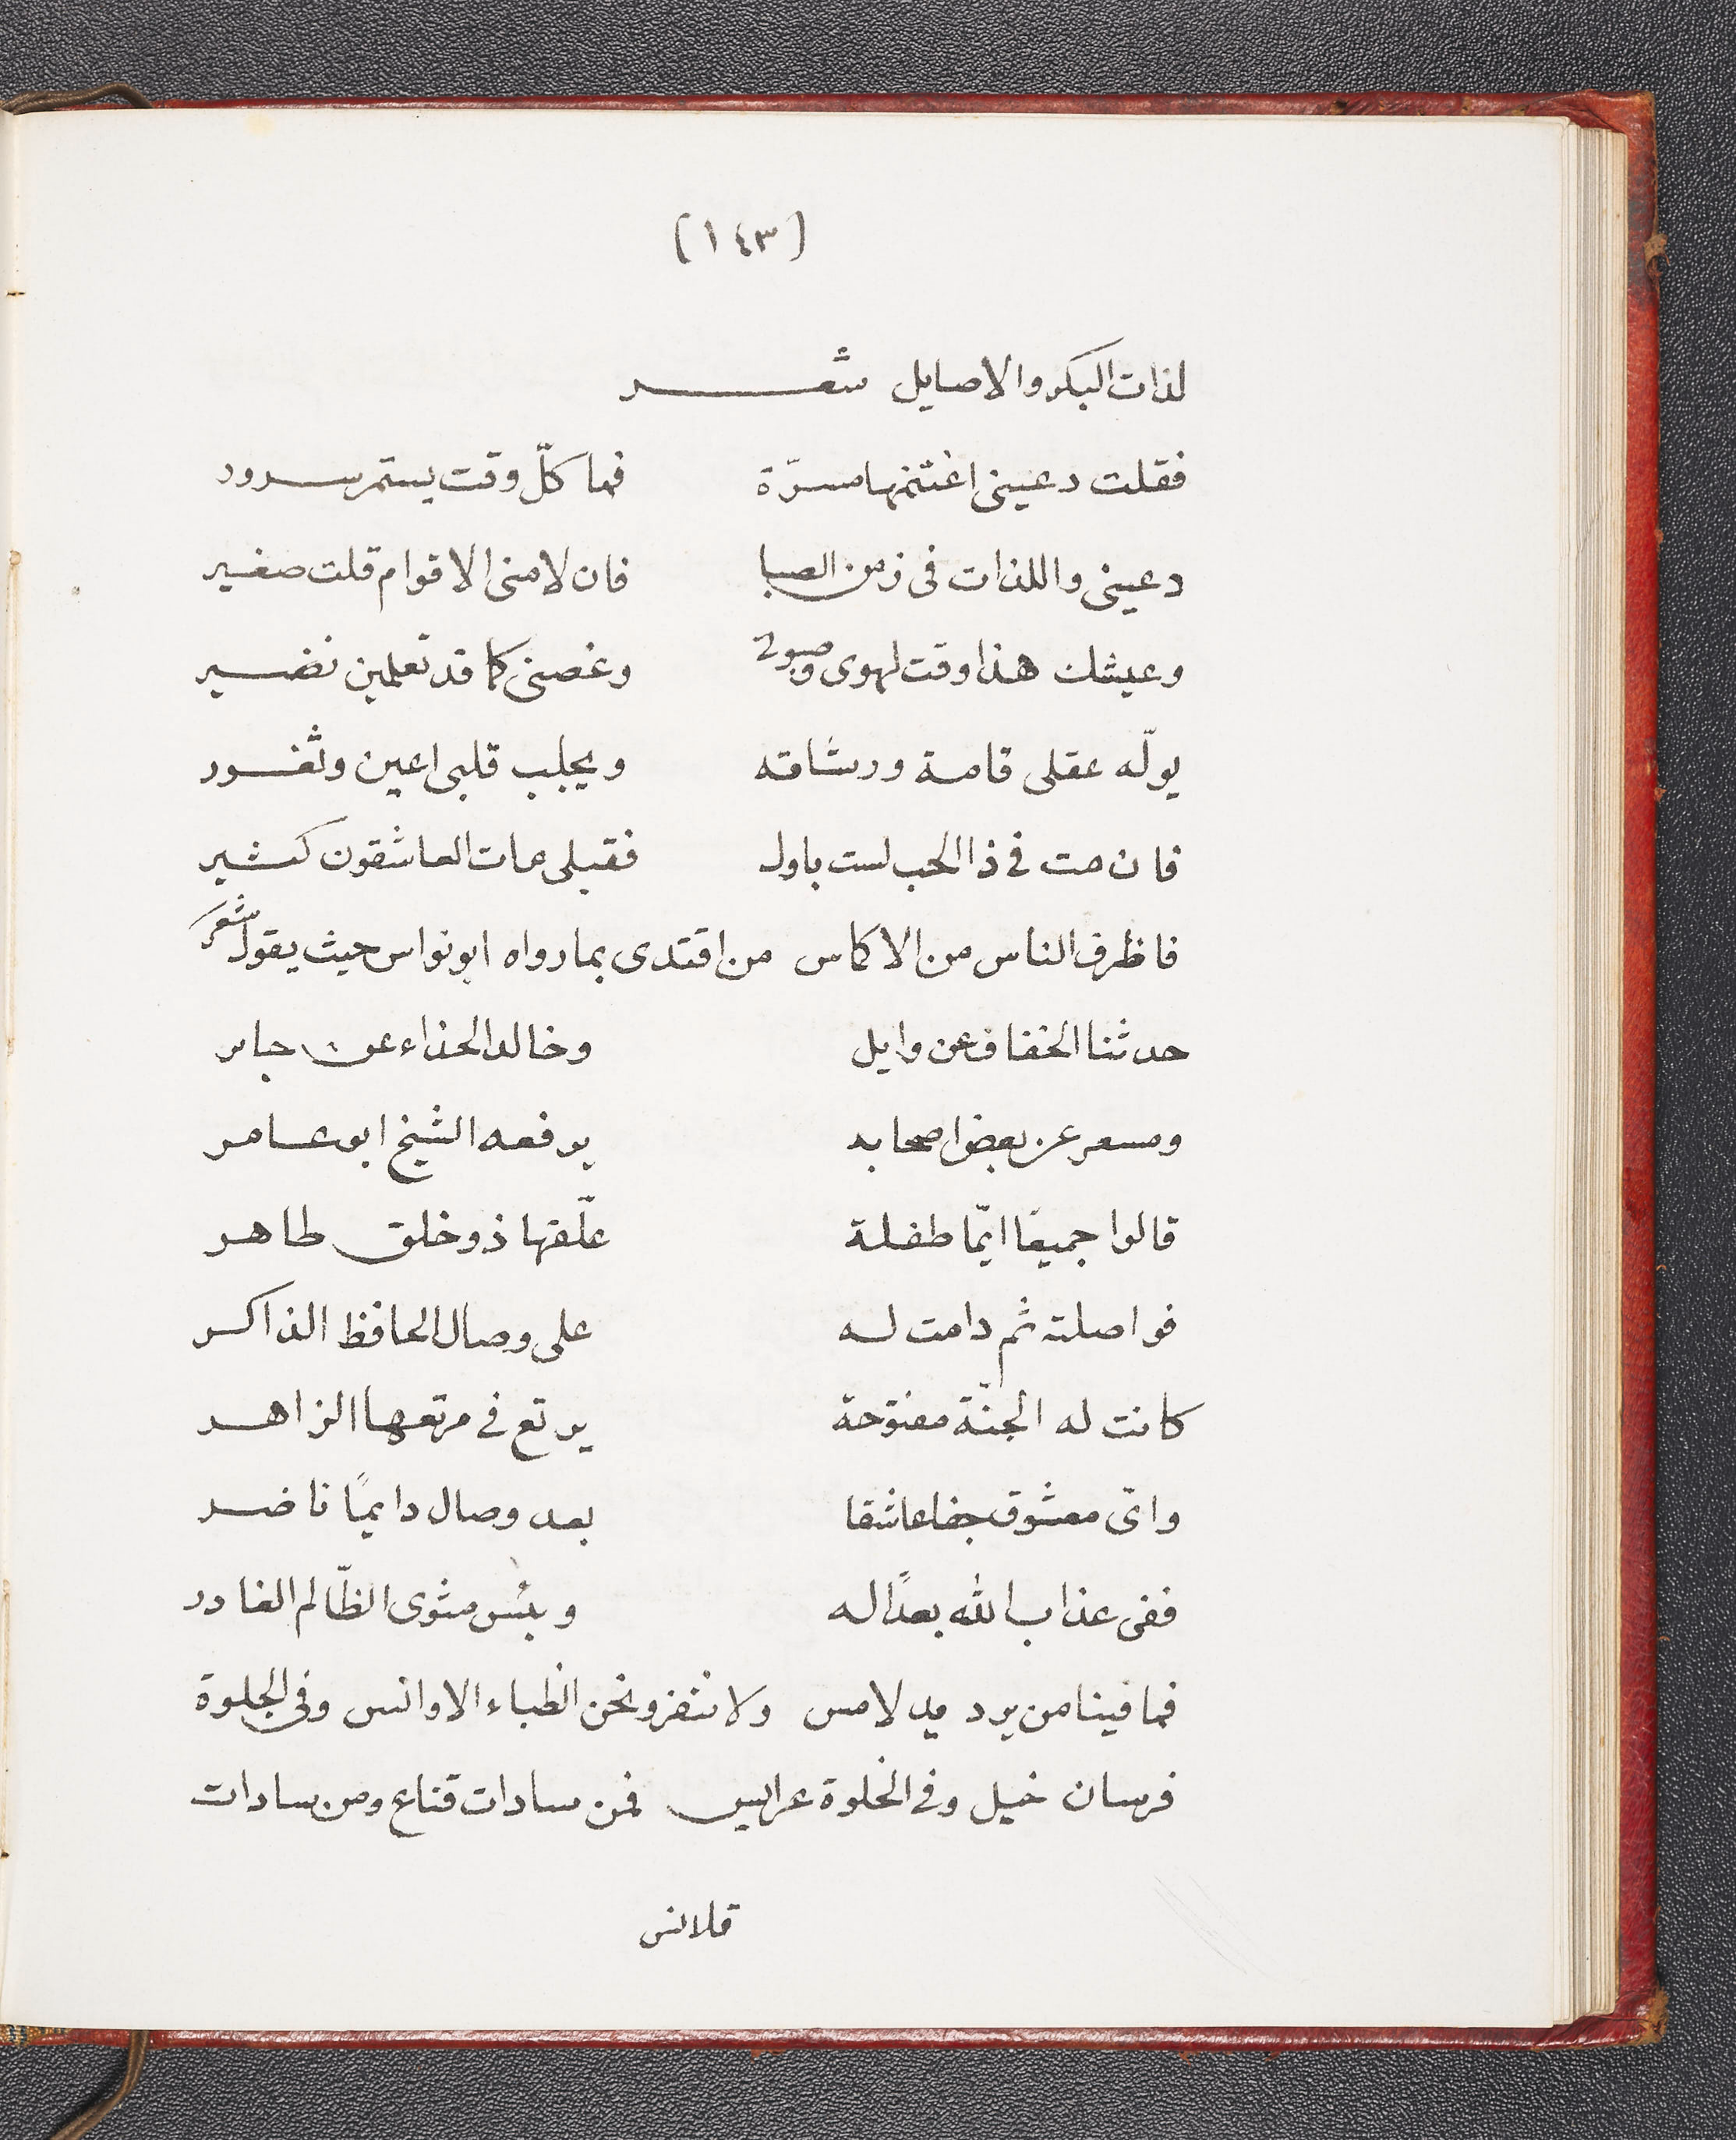 (١٤٣)
لذات البكر والاصايل شعر
فقلت دعينى اغتنمها مسرّة فما كلّ وقت يستمر سرور
دعينى واللذات فى زمن الصبا فان لامنى الاقوام قلت صغير
وعيشك هذا وقت لهوى وصبوتى وغصنى كما قد تعلمين نضير
يولّه عقلى قامة ورشاقه ويجلب قلبى اعين وثغور
فان مت فى ذا الحب لست باول فقبلى مات العاشقون كثير
فاظرف الناس من الاكاس من اقتدى بما رواه ابو نواس حيث يقول شعر
حدثنا الخفاف عن وايل وخالد الحذاء عن جابر
ومسعر عن بعض اصحابه يرفعه الشيخ ابو عامر
قالوا جميعًا ايّما طفلة علّقها ذو خلق طاهر
فواصلته ثم دامت له على وصال الحافظ الذاكر
كانت له الجنّة مفتوحة يرتع فى مرتعها الزاهر
واىّ معشوق جفا عاشقا بعد وصال دايمًا ناضر
ففى عذاب الله بعدًا له وبئس مثوى الظّالم الغادر
فما فينا من يرد يد لامس ولا ننفر ونحن الظباء الاوانس وفى الجلوة
فرسان خيل وفى الخلوة عرايس فمن سادات قناع ومن سادات
قلانس